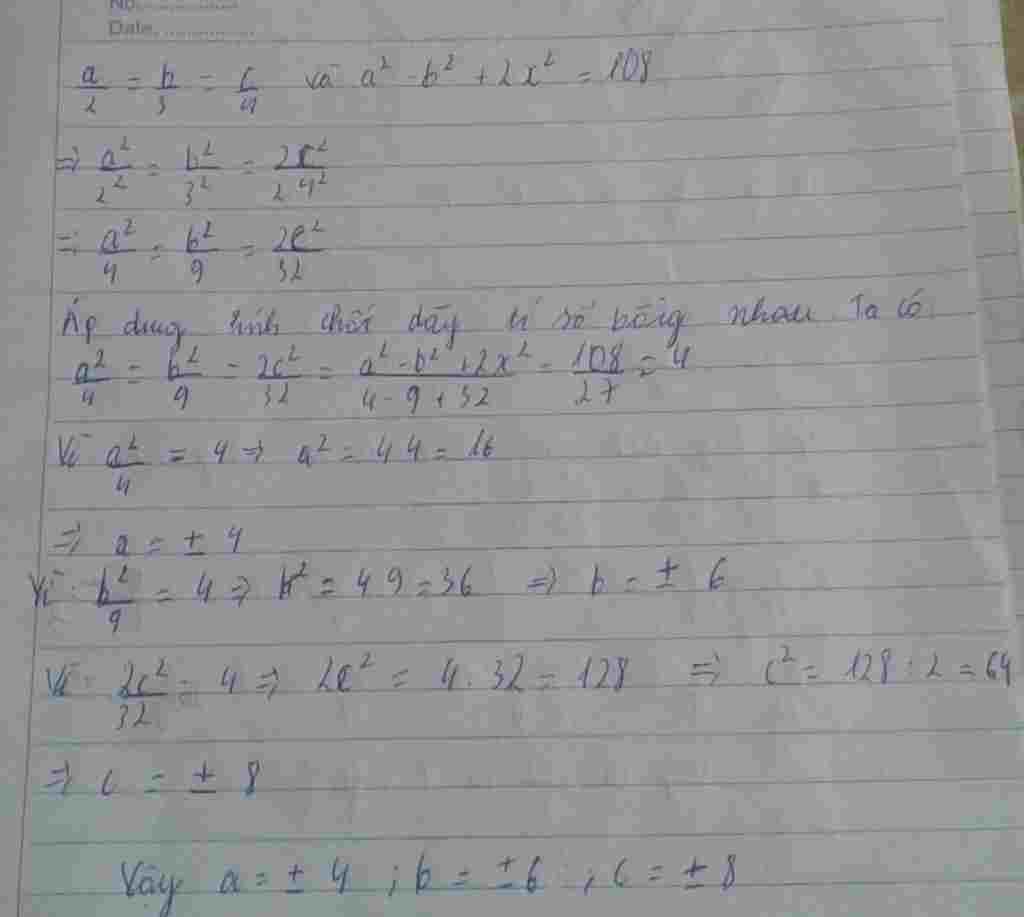 No. ................
Date. ................
a/2 = b/3 = c/4 và a² - b² + 2x² = 108
⇒ a²/2² = b²/3² = 2c²/2 4²
⇒ a²/4 = b²/9 = 2c²/32
Áp dung tính chất dãy tỉ số bằng nhau Ta có
a²/4 = b²/9 = 2c²/32 = a² - b² + 2x²/4 - 9 + 32 = 108/27 = 4
Vì a²/4 = 4 ⇒ a² = 4 4 = 16
⇒ a = ± 4
Vì: b²/9 = 4 ⇒ b² = 4 9 = 36 ⇒ b = ± 6
Vì: 2c²/32 = 4 ⇒ 2c² = 4 . 32 = 128 ⇒ c² = 128 : 2 = 64
⇒ c = ± 8
Vậy a = ± 4 ; b = ± 6 ; c = ± 8